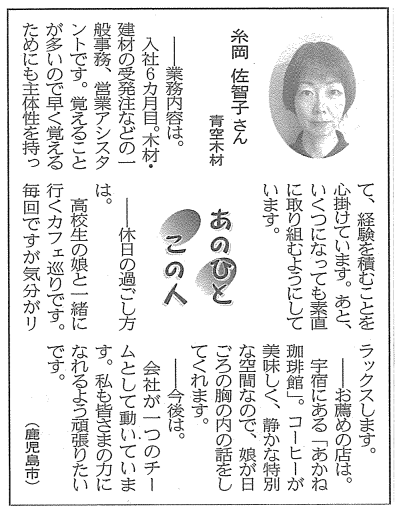 糸岡 佐智子さん
青空木材
あのひと
この人
――業務内容は。
入社6カ月目。木材・
建材の受発注などの一
般事務、営業アシスタ
ントです。覚えること
が多いので早く覚える
ためにも主体性を持っ
て、経験を積むことを
心掛けています。あと、
いくつになっても素直
に取り組むようにして
います。
――休日の過ごし方
は。
高校生の娘と一緒に
行くカフェ巡りです。
毎回ですが気分がリ
ラックスします。
――お薦めの店は。
宇宿にある「あかね
珈琲館」。コーヒーが
美味しく、静かな特別
な空間なので、娘が日
ごろの胸の内の話をし
てくれます。
――今後は。
会社が一つのチー
ムとして動いていま
す。私も皆さまの力に
なれるよう頑張りたい
です。
（鹿児島市）